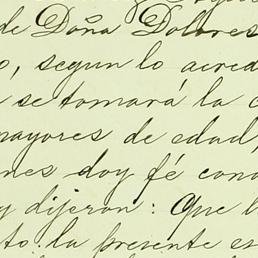 de Doña Dolores
o, segun lo acred
se tomará la c
mayores de edad,
nes doy fé cono
y dijeron: Que l
to la presente es